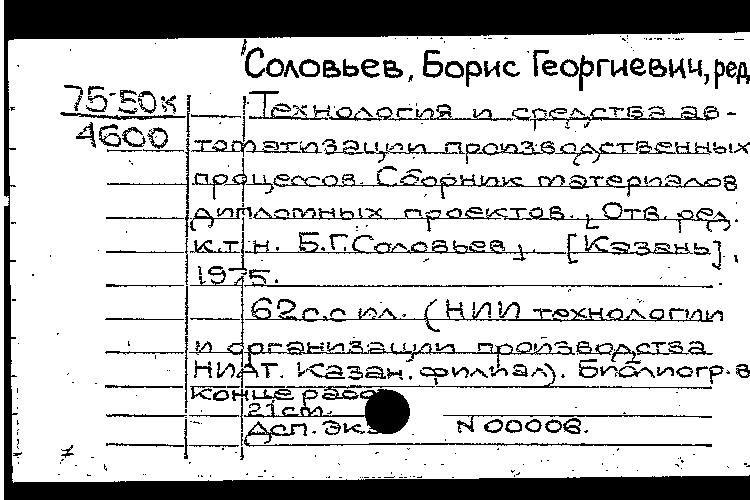 Соловьев, Борис Георгиевич, ред
75-50к
4600
Технология и средства ав-
томатизации производственных
процессов. Сборник материалов
дипломных проектов. [Отв. ред.
к.т.н. Б.Г. Соловьев]. [Казань],
1975.
62 с. с ил. (НИИ технологии
и организации производства
НИАТ. Казан. филиал). Библиогр. в
конце
21 см.
Дсп. экз N 00006.